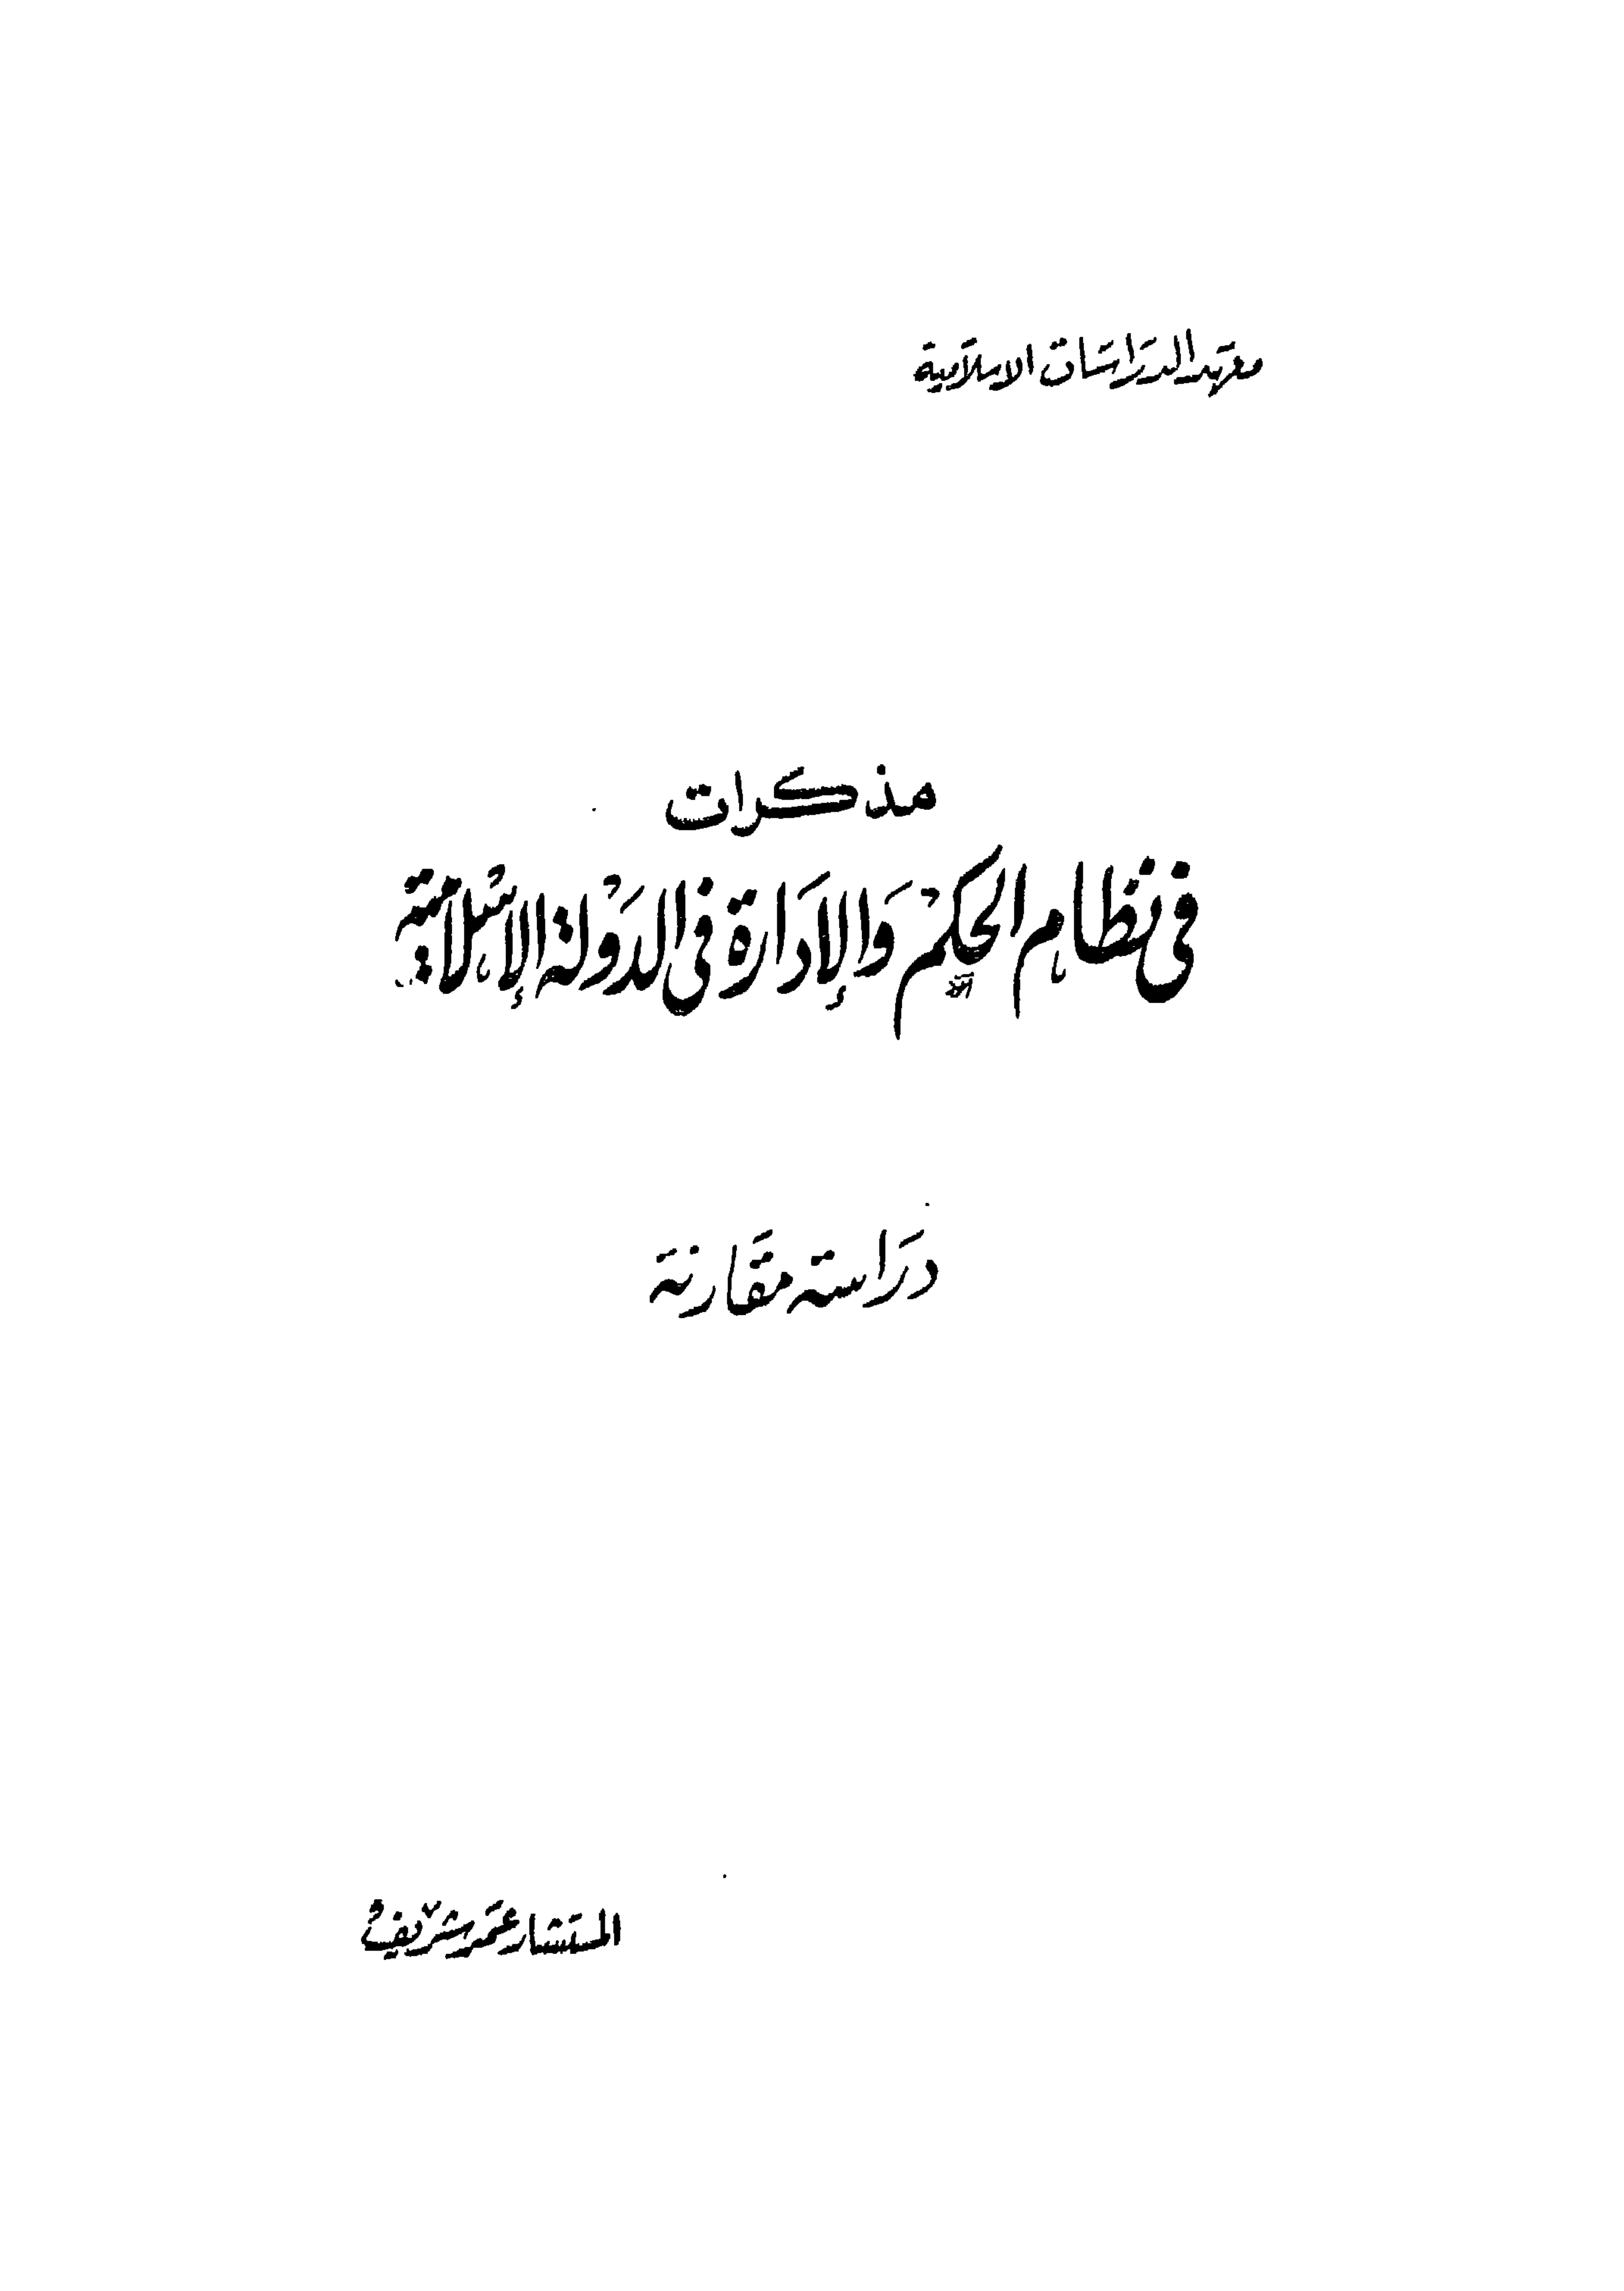 معهد الدراسات الاسلامية
مذكرات
في نظام الحكم والإدارة في الدولة الإسلامية
دراسة مقارنة
المستشار عمر شريف